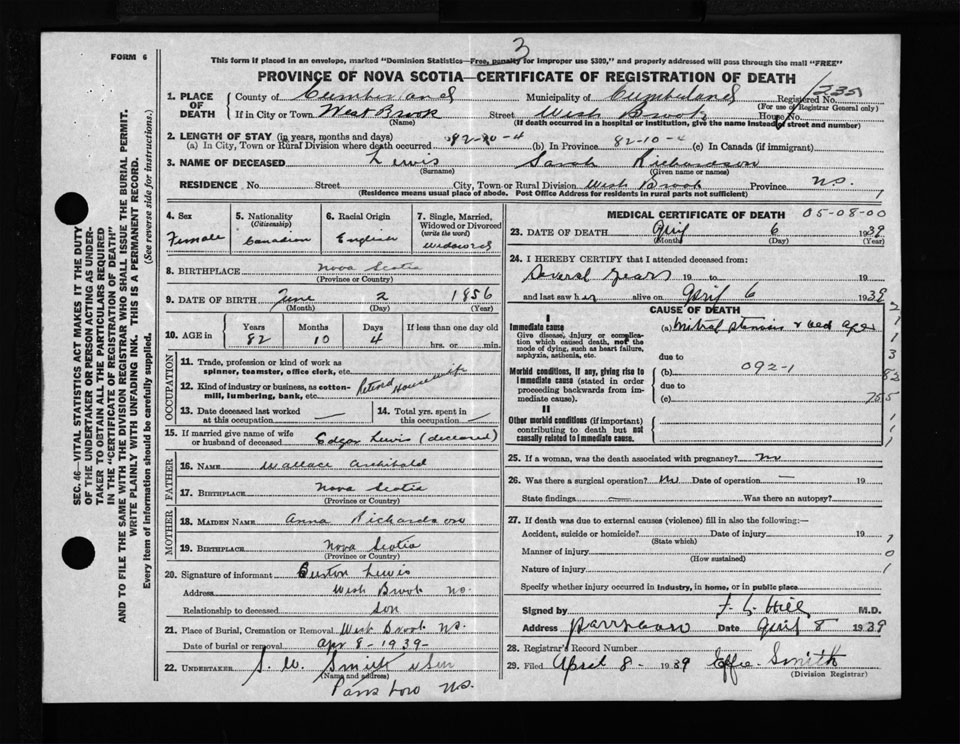 3
FORM 6
This form if placed in an envelope, marked "Dominion Statistics—Free, penalty for improper use $300," and properly addressed will pass through the mail "FREE"
PROVINCE OF NOVA SCOTIA—CERTIFICATE OF REGISTRATION OF DEATH
1. PLACE OF DEATH
County of Cumberland Municipality of Cumberland Registered No.
(For use of Registrar General only)
If in City or Town West Brook Street West Brook House No.
(Name) (If death occurred in a hospital or institution, give the name instead of street and number)
2. LENGTH OF STAY (in years, months and days)
(a) In City, Town or Rural Division where death occurred 82-10-4 (b) In Province 82-10-4 (c) In Canada (if immigrant)
3. NAME OF DECEASED Lewis Sarah Richardson
(Surname) (Given name or names)
RESIDENCE No. Street City, Town or Rural Division West Brook Province N.S.
(Residence means usual place of abode. Post Office Address for residents in rural parts not sufficient) 1
4. Sex Female
5. Nationality (Citizenship) Canadian
6. Racial Origin English
7. Single, Married, Widowed or Divorced (write the word) widowed
8. BIRTHPLACE Nova Scotia
(Province or Country)
9. DATE OF BIRTH June 2 1856
(Month) (Day) (Year)
10. AGE in Years Months Days If less than one day old
82 10 4 hrs. or min.
OCCUPATION
11. Trade, profession or kind of work as spinner, teamster, office clerk, etc.
12. Kind of industry or business, as cotton-mill, lumbering, bank, etc. Retired Housewife
13. Date deceased last worked at this occupation —
14. Total yrs. spent in this occupation —
15. If married give name of wife or husband of deceased Edgar Lewis (deceased)
FATHER
16. NAME Wallace Archibald
17. BIRTHPLACE Nova Scotia
(Province or Country)
MOTHER
18. MAIDEN NAME Anna Richardson
19. BIRTHPLACE Nova Scotia
(Province or Country)
20. Signature of informant Lewis
Address West Brook N.S.
Relationship to deceased son
21. Place of Burial, Cremation or Removal West Brook N.S.
Date of burial or removal apr 8-1939-
22. UNDERTAKER S. W. Smith & Son
(Name and address)
Parrsboro N.S.
MEDICAL CERTIFICATE OF DEATH 05-08-00
23. DATE OF DEATH April 6 1939
(Month) (Day) (Year)
24. I HEREBY CERTIFY that I attended deceased from:
Several years 19 to 19
and last saw her alive on April 6 1939
CAUSE OF DEATH
I
Immediate cause
Give disease, injury or complication which caused death, not the mode of dying, such as heart failure, asphyxia, asthenia, etc.
(a) mitral stenosis & old age
due to
Morbid conditions, if any, giving rise to immediate cause (stated in order proceeding backwards from immediate cause).
(b) 092-1
due to
(c)
II
Other morbid conditions (if important) contributing to death but not causally related to immediate cause.
25. If a woman, was the death associated with pregnancy? no
26. Was there a surgical operation? no Date of operation — 19
State findings — Was there an autopsy?
27. If death was due to external causes (violence) fill in also the following:—
Accident, suicide or homicide? Date of injury 19
(State which)
Manner of injury
(How sustained)
Nature of injury
Specify whether injury occurred in industry, in home, or in public place
Signed by Hill M.D.
Address Parrsboro Date April 8 1939
28. Registrar's Record Number
29. Filed April 8- 1939 Effie Smith
(Division Registrar)
SEC. 46—VITAL STATISTICS ACT MAKES IT THE DUTY
OF THE UNDERTAKER OR PERSON ACTING AS UNDER-
TAKER TO OBTAIN ALL THE PARTICULARS REQUIRED
IN THE "CERTIFICATE OF REGISTRATION OF DEATH"
AND TO FILE THE SAME WITH THE DIVISION REGISTRAR WHO SHALL ISSUE THE BURIAL PERMIT.
WRITE PLAINLY WITH UNFADING INK. THIS IS A PERMANENT RECORD.
Every item of information should be carefully supplied. (See reverse side for instructions.)